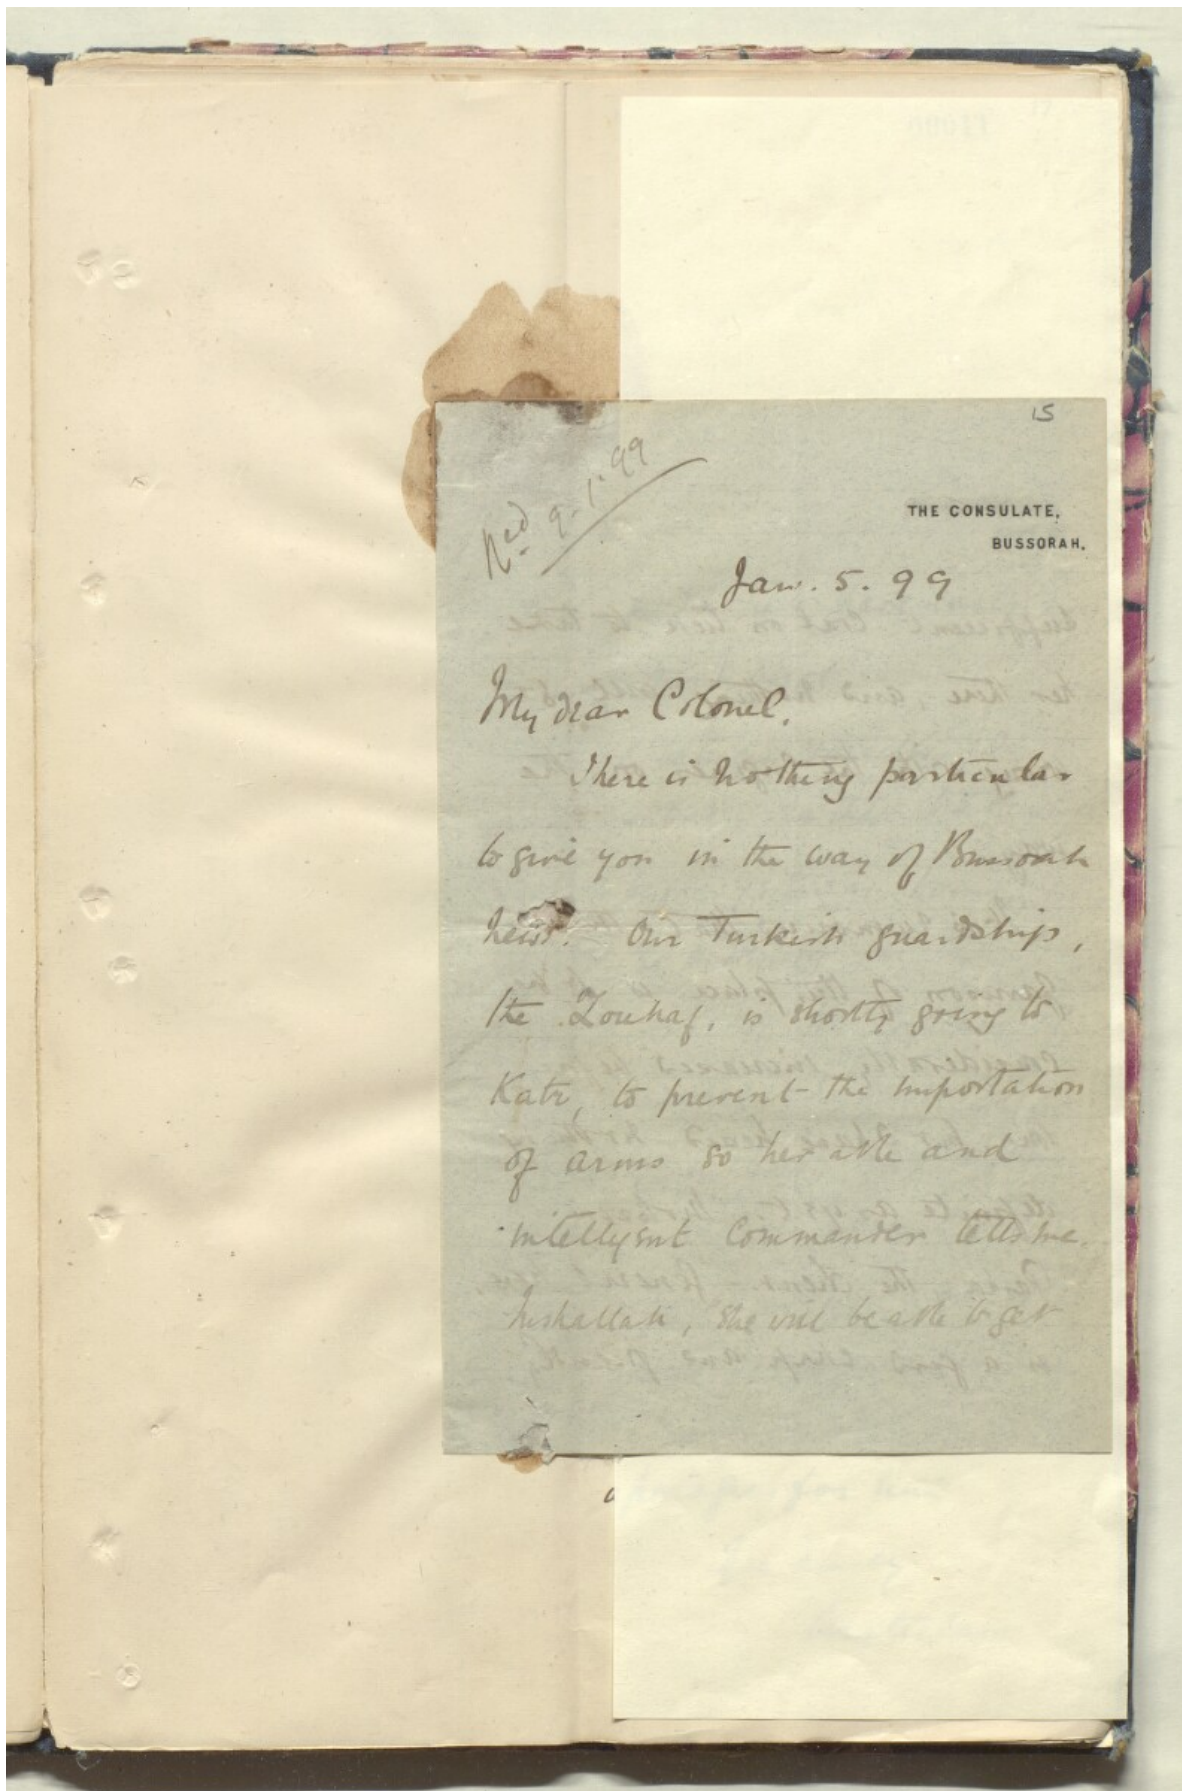 15
Recd 9.1.99
THE CONSULATE,
BUSSORAH.
Jan. 5. 99
My dear Colonel,
There is nothing particular
to give you in the way of Bussorah
news. Our Turkish guardship,
the Zouhaf, is shortly going to
Katr, to prevent the importation
of arms so her able and
intelligent Commander tells me.
Inshallah, she will be able to get